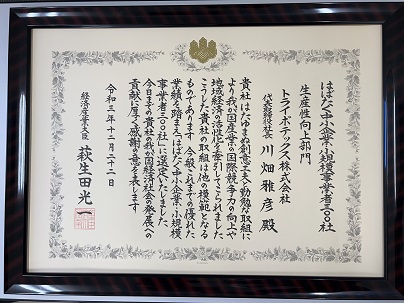 はばたく中小企業・小規模事業者三〇〇社
生産性向上部門
トライボテックス株式会社
代表取締役社長 川畑雅彦殿
貴社はたゆまぬ創意工夫や勤勉な取組に
より我が国産業の国際競争力の向上や
地域経済の活性化を牽引してこられました
こうした貴社の取組は他の模範となる
ものであります 今般これまでの優れた
業績を踏まえ「はばたく中小企業・小規模
事業者三〇〇社」に選定いたしました
今日までの貴社の我が国経済社会の発展への
貢献に厚く感謝の意を表します
令和三年十二月二十二日
経済産業大臣 萩生田光一